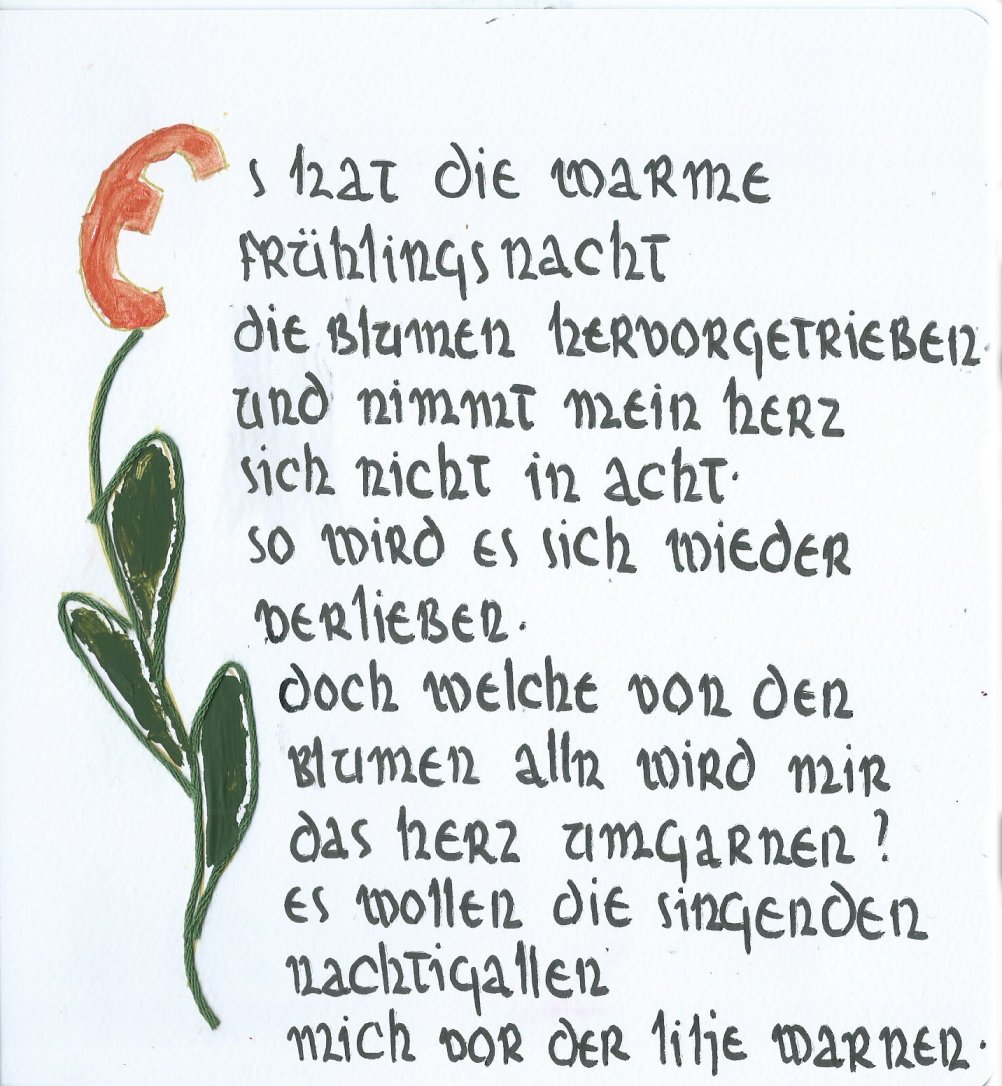 Es hat die warme
frühlingsnacht
die Blumen hervorgetrieben.
und nimmt mein herz
sich nicht in acht.
so wird es sich wieder
verlieben.
doch welche von den
Blumen alln wird mir
das herz umgarnen?
es wollen die singenden
nachtigallen
mich vor der lilje warnen.